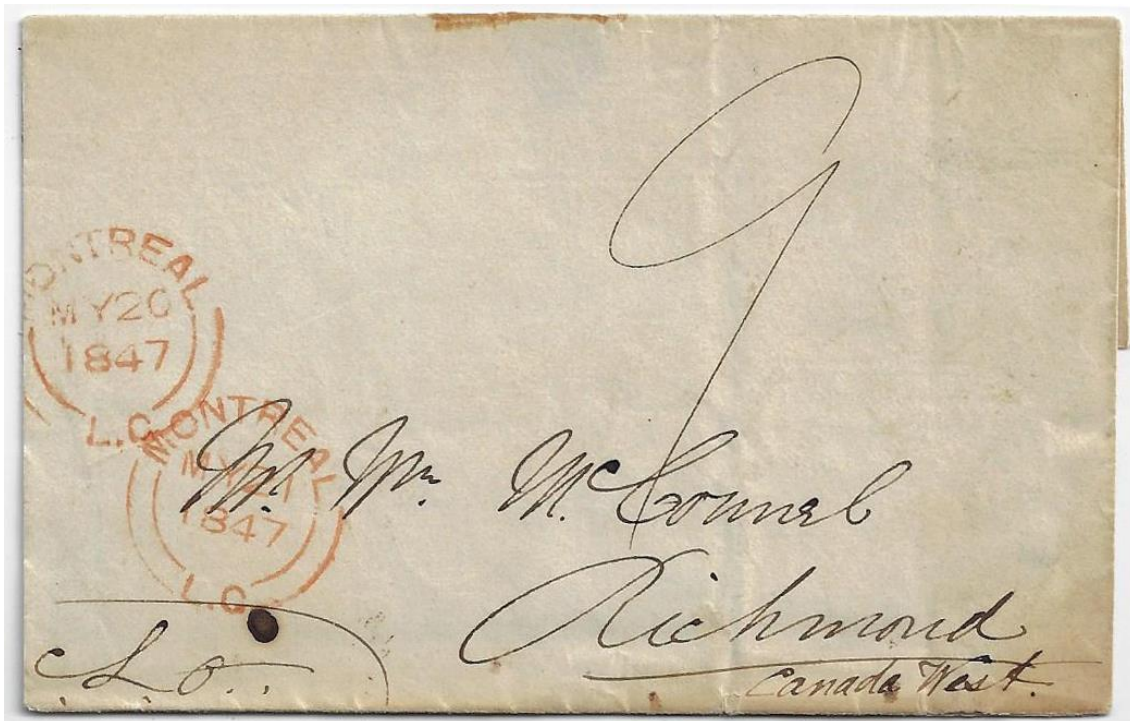 9
MONTREAL
MY 20
1847
L.C.
MONTREAL
MY 21
1847
L.C.
Mr. Wm. McConnel
Richmond
Canada West.